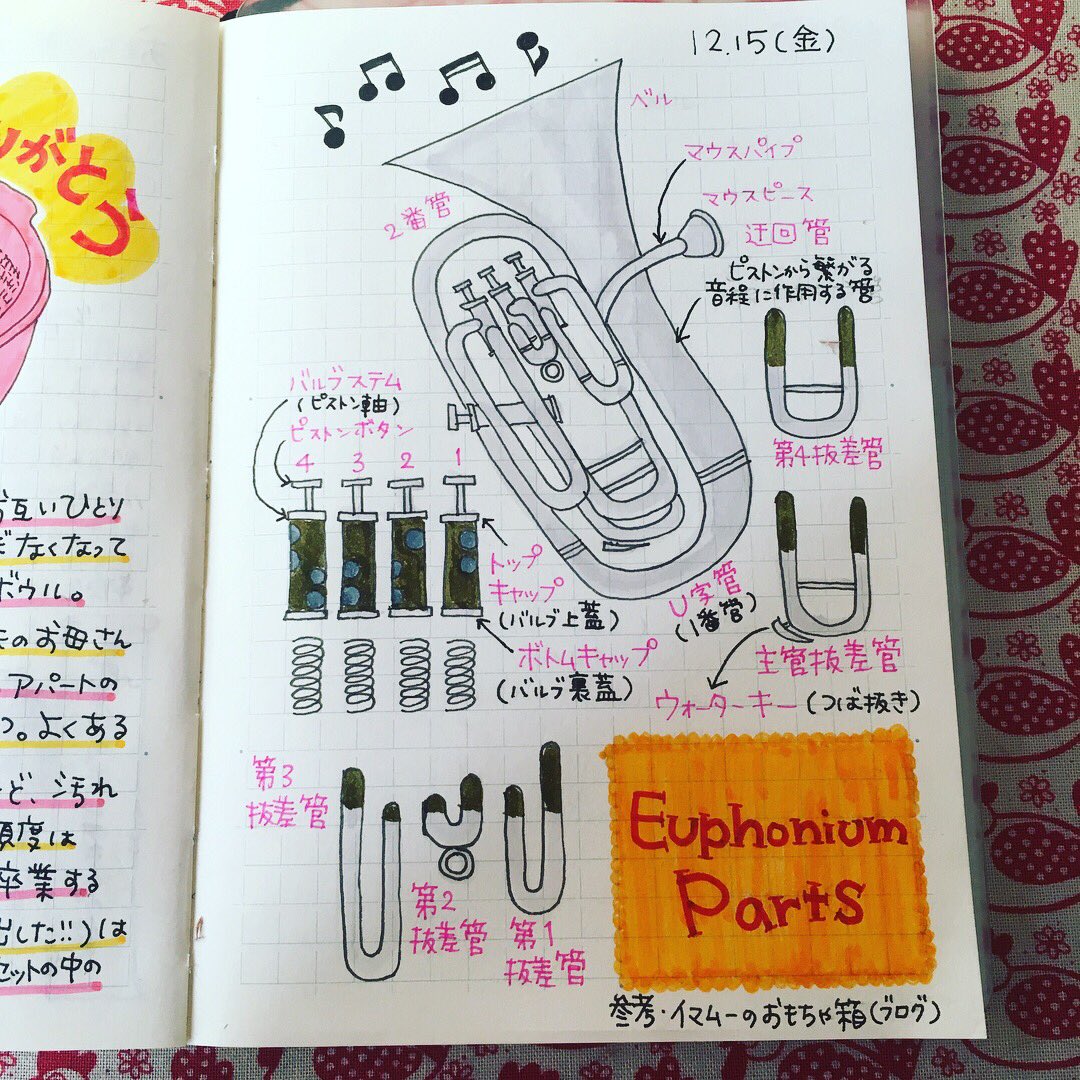 がとう
お互いひとり
なくなって
ボウル。
のお母さん
アパートの
つ。よくある
ど、汚れ
頻度は
卒業する
出した!!)は
セットの中の
12.15(金)
ベル
マウスパイプ
マウスピース
2番管
迂回管
ピストンから繋がる
音程に作用する管
バルブステム
(ピストン軸)
ピストンボタン
4 3 2 1
第4抜差管
トップ
キャップ
(バルブ上蓋)
U字管
(1番管)
ボトムキャップ
(バルブ裏蓋)
主管抜差管
ウォーターキー(つば抜き)
第3
抜差管
第2
抜差管
第1
抜差管
Euphonium
Parts
参考・イマムーのおもちゃ箱(ブログ)